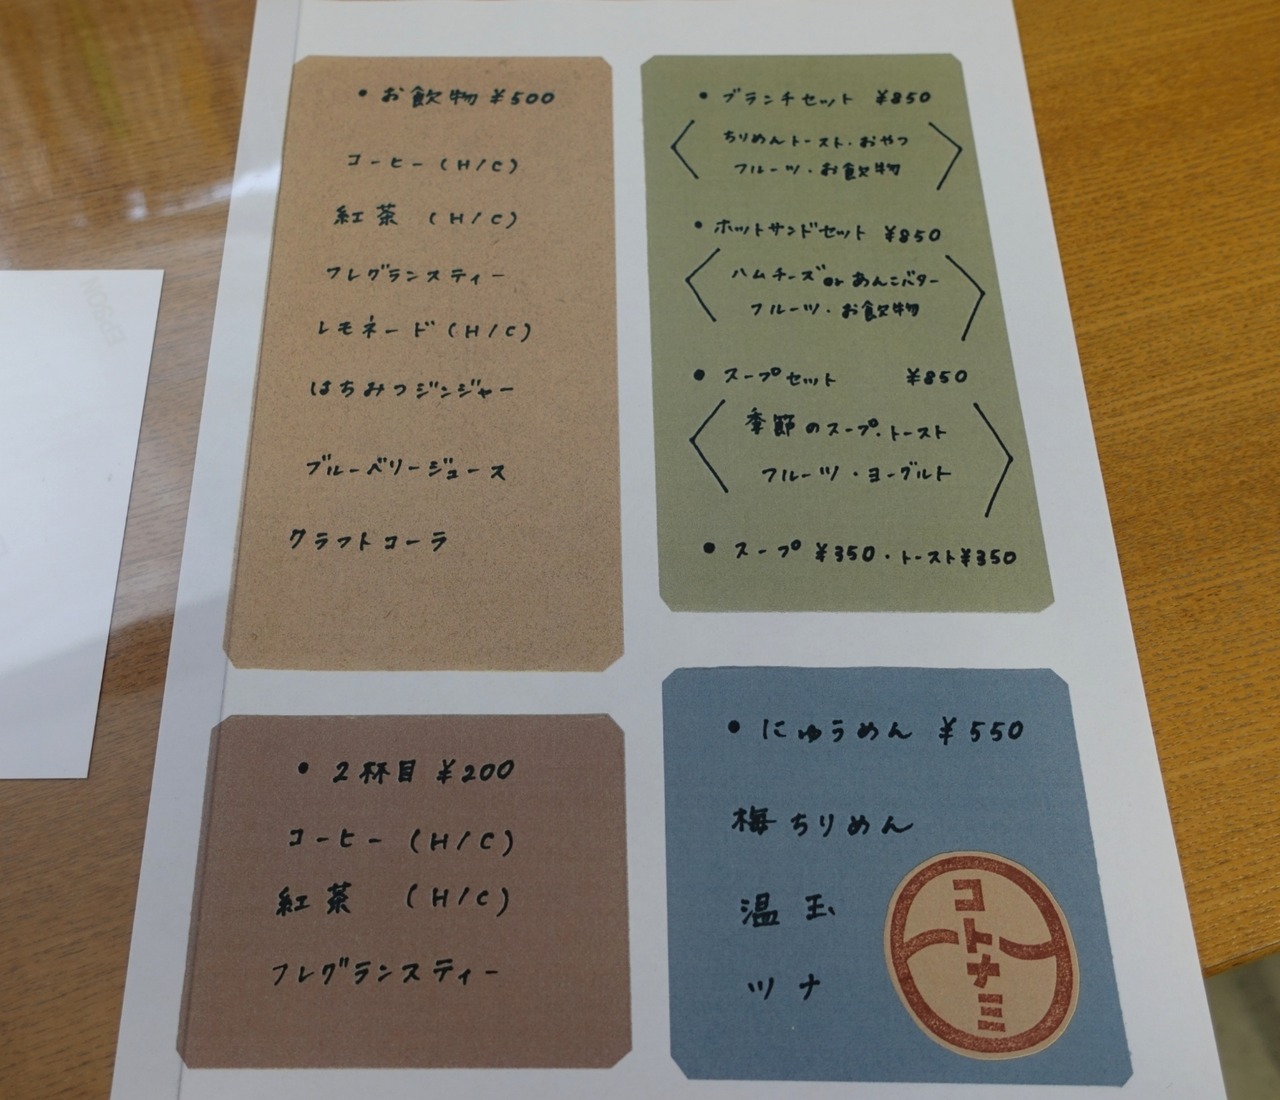 • お飲物 ¥500
コーヒー (H/C)
紅茶 (H/C)
フレグランスティー
レモネード (H/C)
はちみつジンジャー
ブルーベリージュース
クラフトコーラ
• 2杯目 ¥200
コーヒー (H/C)
紅茶 (H/C)
フレグランスティー
• ブランチセット ¥850
ちりめんトースト・おやつ
フルーツ・お飲物
• ホットサンドセット ¥850
ハムチーズ or あんこバター
フルーツ・お飲物
• スープセット ¥850
季節のスープ・トースト
フルーツ・ヨーグルト
• スープ ¥350・トースト¥350
• にゅうめん ¥550
梅ちりめん
温玉
ツナ
コトナミ
EPSON